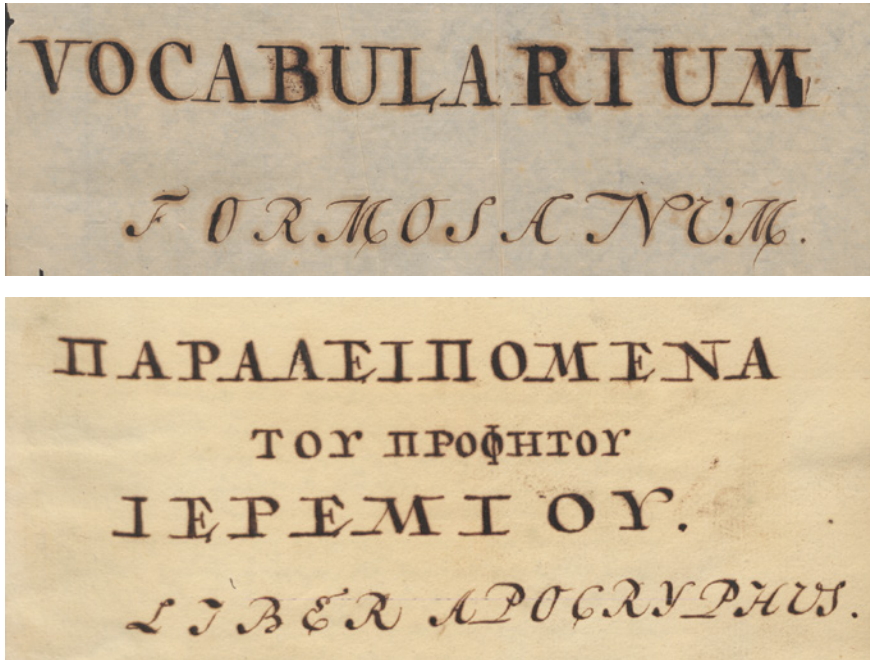 VOCABULARIUM
FORMOSANUM.
ΠΑΡΑΛΕΙΠΟΜΕΝΑ
ΤΟΥ ΠΡΟΦΗΤΟΥ
ΙΕΡΕΜΙΟΥ.
LIBER APOCRYPHUS.